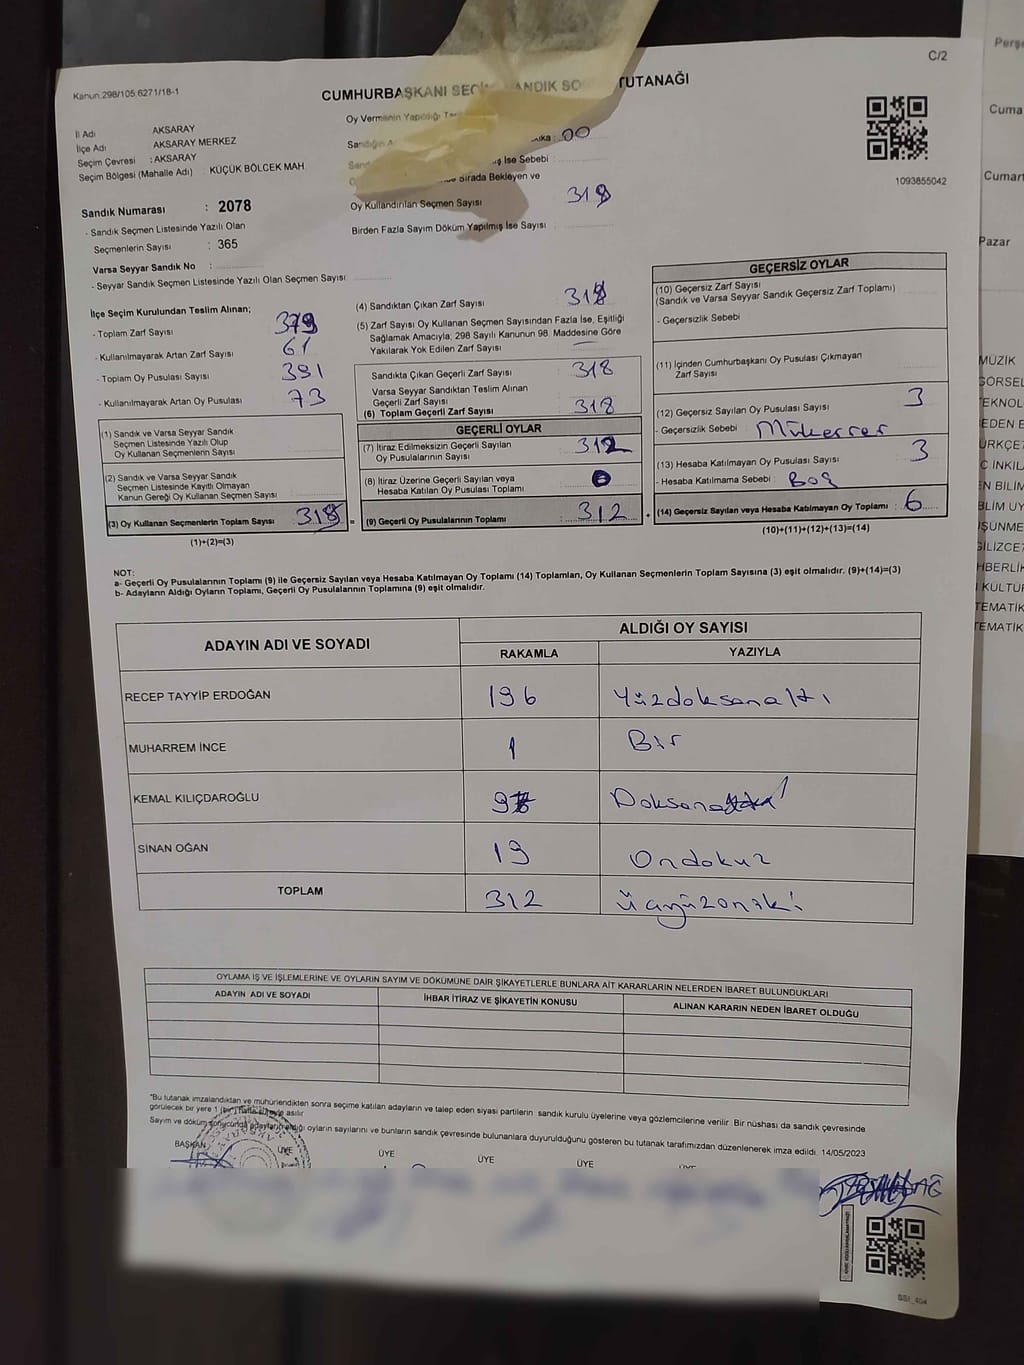 C/2
Kanun:298/105:6271/18-1
CUMHURBAŞKANI SEÇİM SANDIK SO TUTANAĞI
İl Adı AKSARAY
İlçe Adı AKSARAY MERKEZ
Seçim Çevresi : AKSARAY
Seçim Bölgesi (Mahalle Adı) : KÜÇÜK BÖLCEK MAH
Sandık Numarası : 2078
- Sandık Seçmen Listesinde Yazılı Olan
Seçmenlerin Sayısı : 365
Varsa Seyyar Sandık No :
- Seyyar Sandık Seçmen Listesinde Yazılı Olan Seçmen Sayısı:
Oy Vermenin Yapıldığı
: 00
İse Sebebi :
Sırada Bekleyen ve
Oy Kullandırılan Seçmen Sayısı 318
Birden Fazla Sayım Döküm Yapılmış İse Sayısı :
1093855042
İlçe Seçim Kurulundan Teslim Alınan;
- Toplam Zarf Sayısı 379
- Kullanılmayarak Artan Zarf Sayısı 61
- Toplam Oy Pusulası Sayısı 391
- Kullanılmayarak Artan Oy Pusulası 73
(1) Sandık ve Varsa Seyyar Sandık
Seçmen Listesinde Yazılı Olup
Oy Kullanan Seçmenlerin Sayısı
(2) Sandık ve Varsa Seyyar Sandık
Seçmen Listesinde Kayıtlı Olmayan
Kanun Gereği Oy Kullanan Seçmen Sayısı
(3) Oy Kullanan Seçmenlerin Toplam Sayısı 318 =
(1)+(2)=(3)
(4) Sandıktan Çıkan Zarf Sayısı 318
(5) Zarf Sayısı Oy Kullanan Seçmen Sayısından Fazla İse, Eşitliği
Sağlamak Amacıyla, 298 Sayılı Kanunun 98. Maddesine Göre
Yakılarak Yok Edilen Zarf Sayısı —
Sandıkta Çıkan Geçerli Zarf Sayısı 318
Varsa Seyyar Sandıktan Teslim Alınan
Geçerli Zarf Sayısı
(6) Toplam Geçerli Zarf Sayısı 318
GEÇERLİ OYLAR
(7) İtiraz Edilmeksizin Geçerli Sayılan
Oy Pusulalarının Sayısı 312
(8) İtiraz Üzerine Geçerli Sayılan veya
Hesaba Katılan Oy Pusulası Toplamı 0
(9) Geçerli Oy Pusulalarının Toplamı : 312
GEÇERSİZ OYLAR
(10) Geçersiz Zarf Sayısı
(Sandık ve Varsa Seyyar Sandık Geçersiz Zarf Toplamı)
- Geçersizlik Sebebi
(11) İçinden Cumhurbaşkanı Oy Pusulası Çıkmayan
Zarf Sayısı
(12) Geçersiz Sayılan Oy Pusulası Sayısı 3
- Geçersizlik Sebebi : Mükerrer
(13) Hesaba Katılmayan Oy Pusulası Sayısı 3
- Hesaba Katılmama Sebebi : Boş
(14) Geçersiz Sayılan veya Hesaba Katılmayan Oy Toplamı : 6
(10)+(11)+(12)+(13)=(14)
NOT:
a- Geçerli Oy Pusulalarının Toplamı (9) ile Geçersiz Sayılan veya Hesaba Katılmayan Oy Toplamı (14) Toplamları, Oy Kullanan Seçmenlerin Toplam Sayısına (3) eşit olmalıdır. (9)+(14)=(3)
b- Adayların Aldığı Oyların Toplamı, Geçerli Oy Pusulalarının Toplamına (9) eşit olmalıdır.
ADAYIN ADI VE SOYADI ALDIĞI OY SAYISI
RAKAMLA YAZIYLA
RECEP TAYYİP ERDOĞAN 196 Yüzdoksanaltı
MUHARREM İNCE 1 Bir
KEMAL KILIÇDAROĞLU 96 Doksanaltı
SİNAN OĞAN 19 Ondokuz
TOPLAM 312 Üçyüzoniki
OYLAMA İŞ VE İŞLEMLERİNE VE OYLARIN SAYIM VE DÖKÜMÜNE DAİR ŞİKAYETLERLE BUNLARA AİT KARARLARIN NELERDEN İBARET BULUNDUKLARI
ADAYIN ADI VE SOYADI İHBAR İTİRAZ VE ŞİKAYETİN KONUSU ALINAN KARARIN NEDEN İBARET OLDUĞU
"Bu tutanak imzalandıktan ve mühürlendikten sonra seçime katılan adayların ve talep eden siyasi partilerin sandık kurulu üyelerine veya gözlemcilerine verilir. Bir nüshası da sandık çevresinde
görülecek bir yere 1 (bir) hafta süreyle asılır
Sayım ve döküm sonucunda adayların aldığı oyların sayılarını ve bunların sandık çevresinde bulunanlara duyurulduğunu gösteren bu tutanak tarafımızdan düzenlenerek imza edildi. 14/05/2023
BAŞKAN ÜYE ÜYE ÜYE ÜYE ÜYE
Cuma
Pazar
MÜZİK